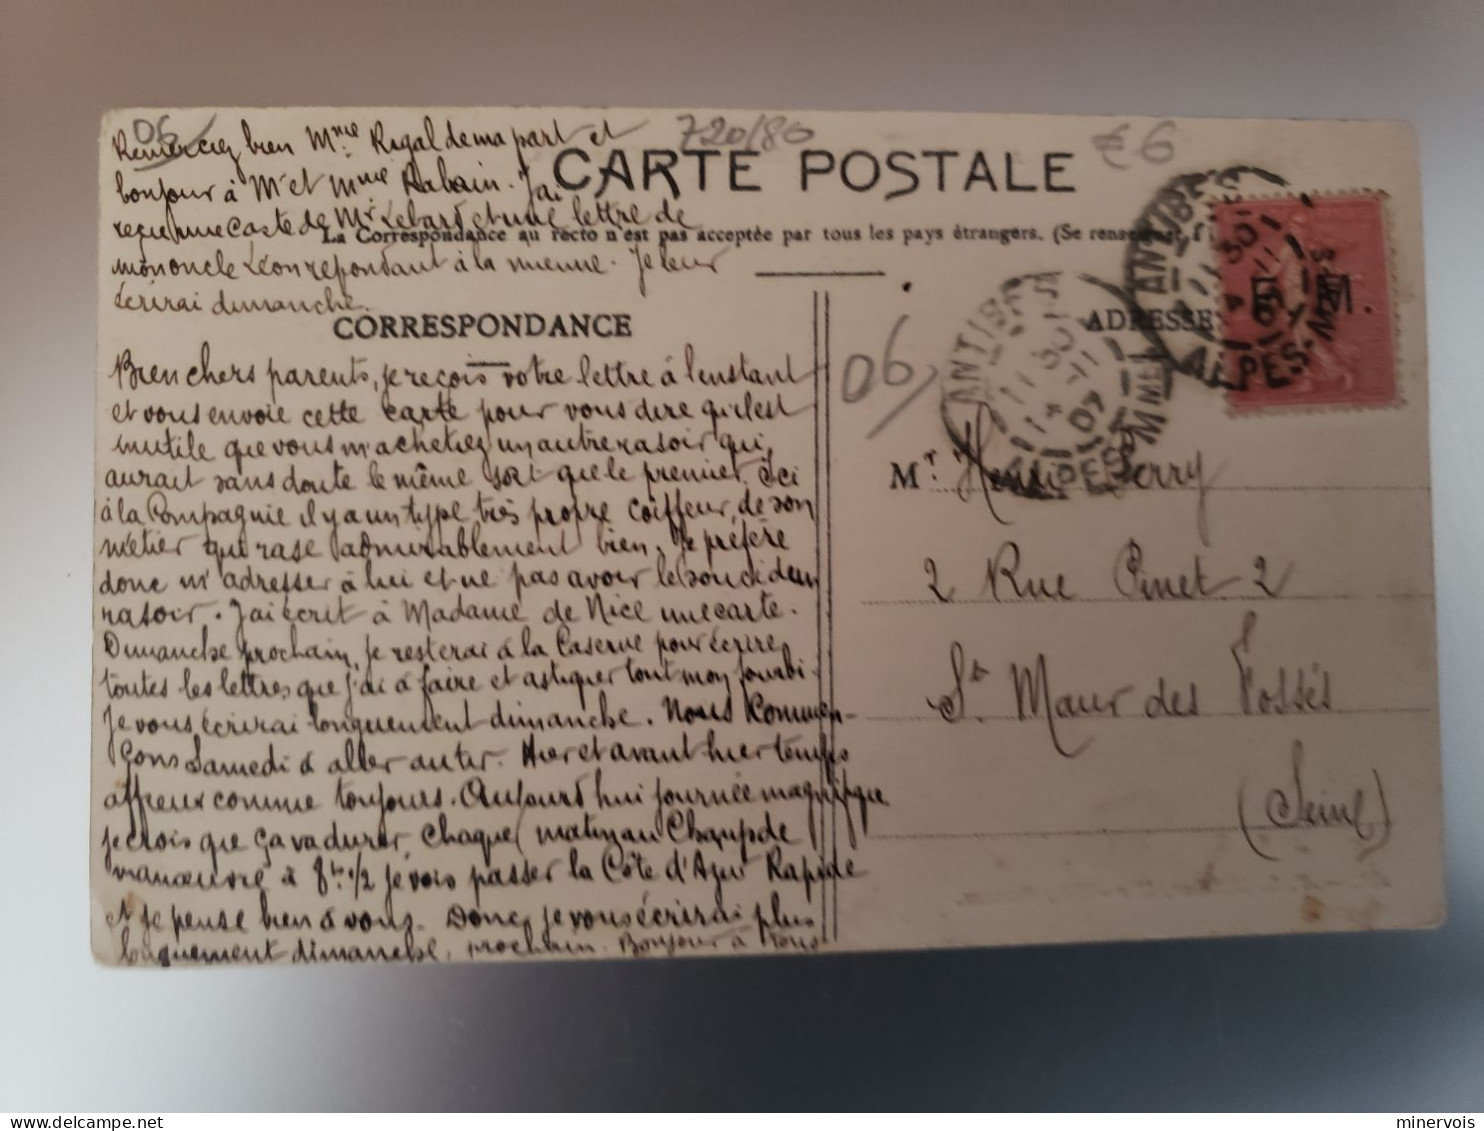 06
720/80
€ 6
Remerciez bien Mme Rigal de ma part et
bonjour à Mr et Mme Rabain. J'ai
reçu une carte de Mr Lebard et une lettre de
mon oncle Léon repondant à la mienne. Je leur
écrirai dimanche.
CARTE POSTALE
La Correspondance au recto n'est pas acceptée par tous les pays étrangers. (Se renseigner
CORRESPONDANCE
Bien chers parents, je reçois votre lettre à l'instant
et vous envoie cette carte pour vous dire qu'il est
inutile que vous m'achetiez un autre rasoir qui,
aurait sans doute le même sort que le premier. Ici
à la Compagnie il y a un type très propre coiffeur, de son
métier qui rase admirablement bien. Je préfère
donc m'adresser à lui et ne pas avoir le souci d'un
rasoir. J'ai écrit à Madame de Nice une carte.
Dimanche prochain, je resterai à la Caserne pour écrire
toutes les lettres que j'ai à faire et astiquer tout mon fourbi.
Je vous écrirai longuement dimanche. Nous commen-
çons Samedi à aller au tir. Hier et avant hier temps
affreux comme toujours. Aujourd'hui journée magnifique
je crois que ça va durer, Chaque matin au Champ de
manœuvre à 8h 1/2 je vois passer la Côte d'Azur Rapide
et je pense bien à vous. Donc je vous écrirai plus
longuement dimanche, prochain. Bonjour à tous
06
ADRESSE
E. M.
ANTIBES
11 30
4 -11
07
ALPES-MMES
ANTIBES
11 30
4 -11
07
ALPES-MMES
Mr. Henri Serry
2 Rue Pinet 2
St Maur des Fossés
(Seine)
minervois